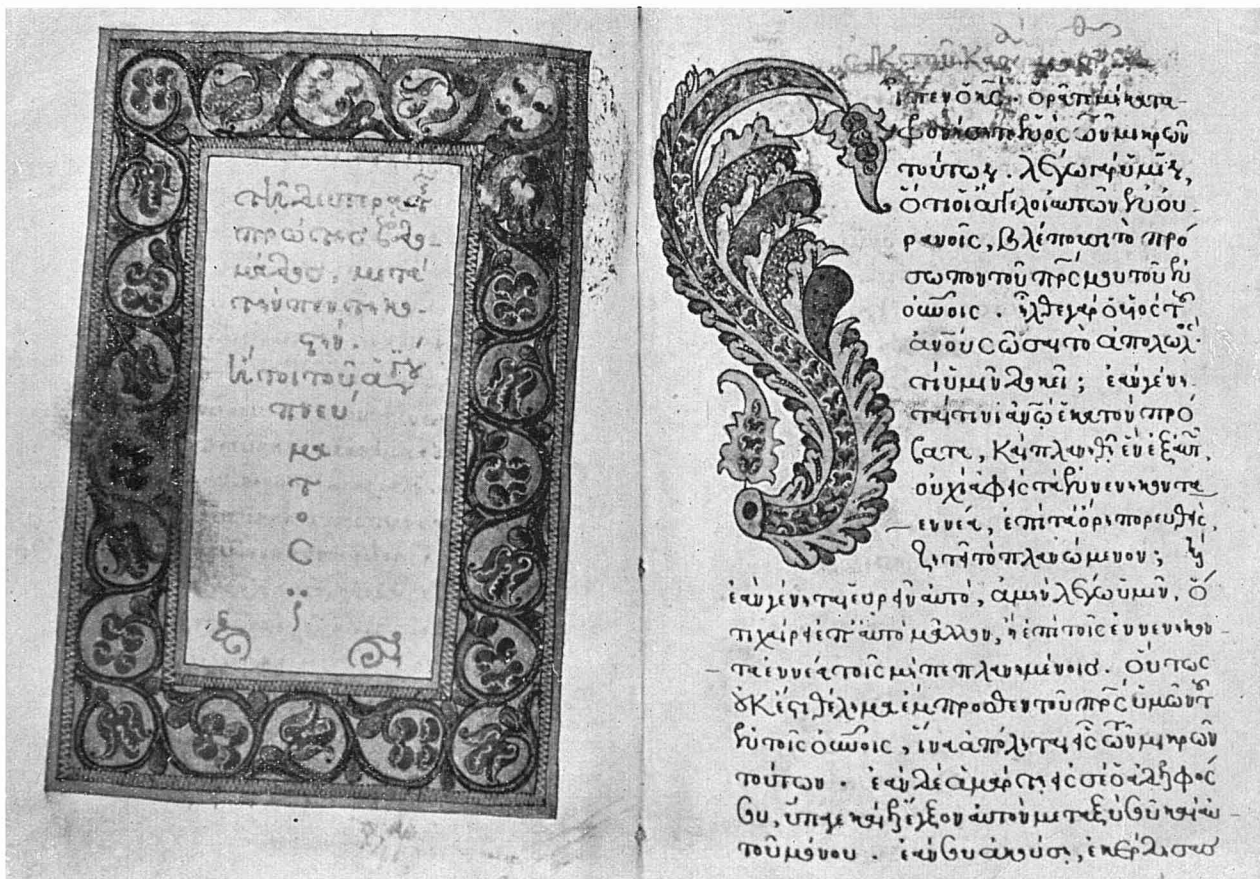 τῇ δευτέρα τῆς
πρώτης ἑβδο-
μάδος, μετὰ
τὴν πεντηκο-
στήν.
ἤτοι τοῦ ἁγίου
πνεύ
μα
τ
ο
ς
:
Ἐκ τοῦ Κατὰ
Εἶπεν ὁ κς. ὁρᾶτε μὴ κατα-
φρονήσητε ἑνὸς τῶν μικρῶν
τούτων. λέγω γὰρ ὑμῖν,
ὅτι οἱ ἄγγελοι αὐτῶν ἐν οὐ-
ρανοῖς, βλέπουσι τὸ πρό
σωπον τοῦ πρς μου τοῦ ἐν
οὐνοις. ἦλθε γὰρ ὁ υἱὸς τοῦ
ἀνου σῶσαι τὸ ἀπολωλός
τί ὑμῖν δοκεῖ; ἐὰν γένη
ταί τινι ἀνω ἑκατὸν πρό
βατα, καὶ πλανηθῆ ἓν ἐξ αὐτ,
οὐχὶ ἀφεὶς τὰ ἐννενηκοντα
ἐννέα, ἐπὶ τὰ ὄρη πορευθεὶς,
ζητεῖ τὸ πλανώμενον; καὶ
ἐὰν γένηται εὑρεῖν αὐτό, ἀμὴν λέγω ὑμῖν, ὅ
τι χαίρει ἐπ' αὐτὸ μᾶλλον, ἢ ἐπὶ τοῖς ἐννενηκον-
τα ἐννέα τοῖς μὴ πεπλανημένοις. οὕτως
οὐκ ἔστι θέλημα ἔμπροσθεν τοῦ πρς ὑμῶν τοῦ
ἐν τοῖς οὐνοις, ἵνα ἀπόληται εἷς τῶν μικρῶν
τούτων. ἐὰν δὲ ἁμάρτη εἰς σὲ ὁ ἀδελφός
σου, ὕπαγε καὶ ἔλεγξον αὐτὸν μεταξὺ σοῦ καὶ αὐ-
τοῦ μόνου. ἐάν σου ἀκούση, ἐκέρδησας